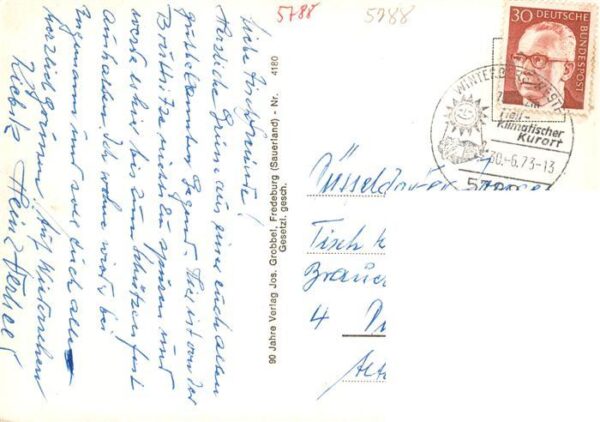 5788
5988
30 DEUTSCHE
BUNDESPOST
WINTERBERG
Heil-
klimatischer
Kurort
30.-6.73-13
Liebe Tischfreunde!
Herzliche Grüsse aus einer euch allen
gutbekannten Gegend. Hier ist von der
Bruthitze nichts zu spüren und
werde es hier bis zum Schützenfest
aushalten. Ich wohne wieder bei
und soll euch allen
herzlich grüssen. Auf Wiedersehen
Heinz
90 Jahre Verlag Jos. Grobbel, Fredeburg (Sauerland) - Nr. 4180
Gesetzl. gesch.
Düsseldorfer
Tisch
Brauer
4